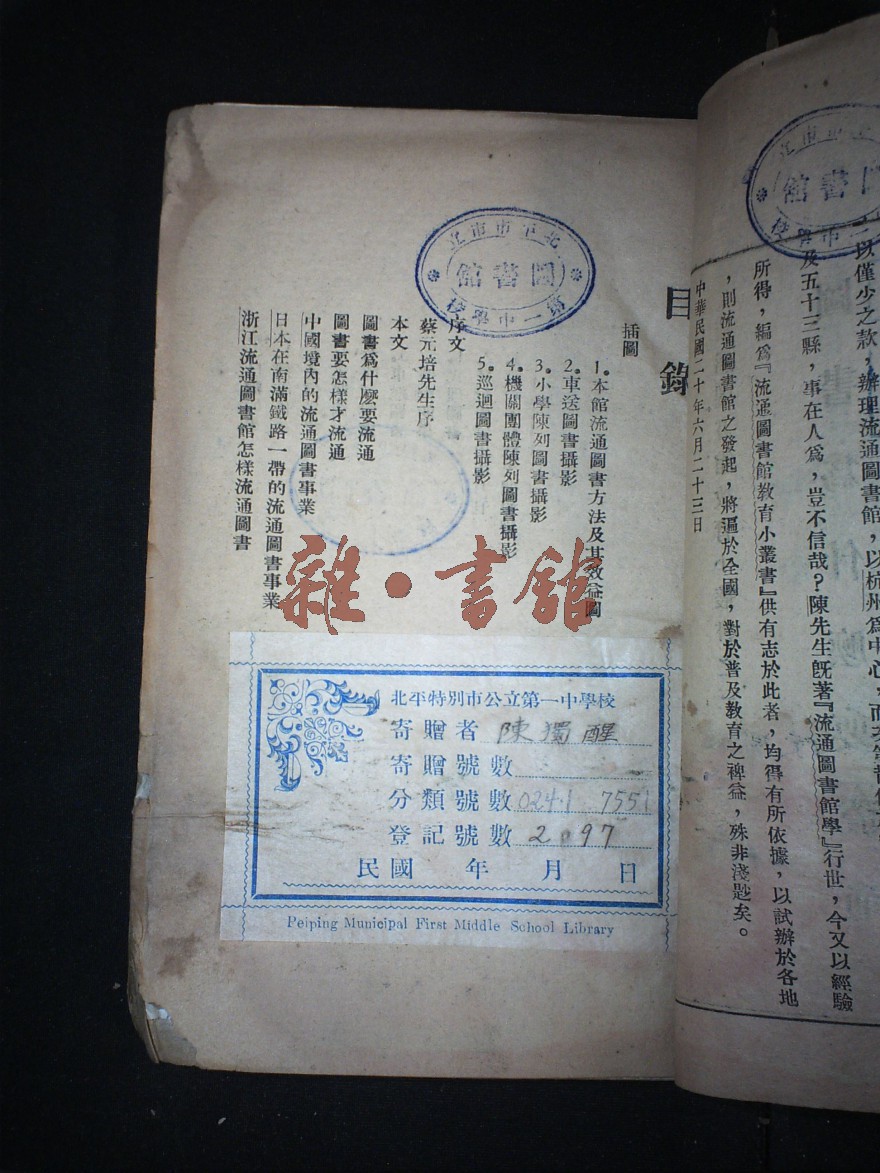 以僅少之款，辦理流通圖書館，以杭州爲中心，而
及五十三縣，事在人爲，豈不信哉？陳先生既著『流通圖書館學』行世，今又以經驗
所得，編爲『流通圖書館教育小叢書』供有志於此者，均得有所依據，以試辦於各地
，則流通圖書館之發起，將遍於全國，對於普及教育之裨益，殊非淺尠矣。
中華民國二十年六月二十三日
目錄
插圖
1。本館流通圖書方法及其效益圖
2。車送圖書攝影
3。小學陳列圖書攝影
4。機關團體陳列圖書攝影
5。巡迴圖書攝影
序文
蔡元培先生序
本文
圖書爲什麽要流通
圖書要怎樣才流通
中國境內的流通圖書事業
日本在南滿鐵路一帶的流通圖書事業
浙江流通圖書館怎樣流通圖書
北平市市立
圖書館
第一中學校
市市立
圖書館
一中學校
雜·書館
北平特別市公立第一中學校
寄贈者 陳獨醒
寄贈號數
分類號數 024.1 7551
登記號數 2097
民國 年 月 日
Peiping Municipal First Middle School Library